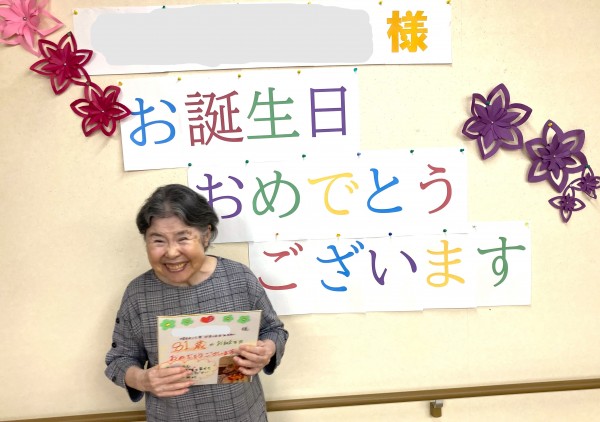 様
お誕生日
おめでとう
ございます
様
おめでとうございます